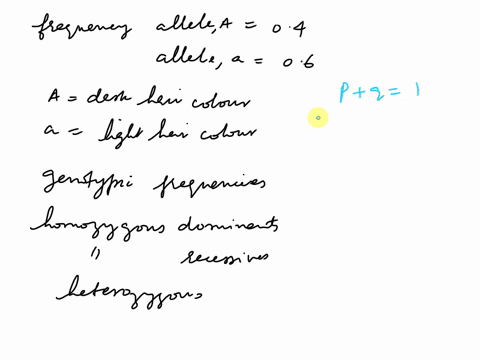 frequency allele, A = 0.4
allele, a = 0.6
A = dark hair colour
p + q = 1
a = light hair colour
genotypic frequencies
homozygous dominants
" recessives
heterozygous